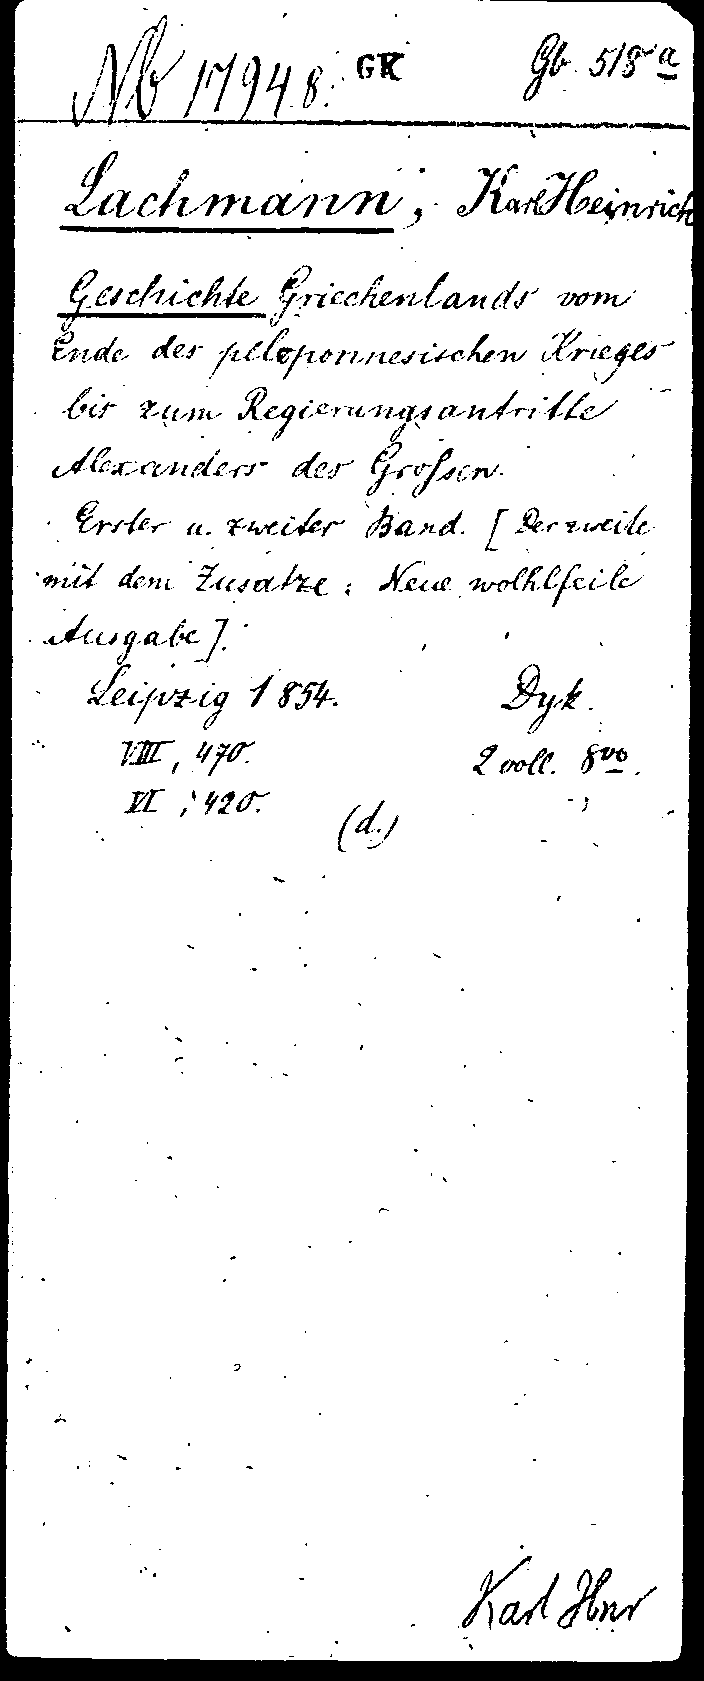 Nb 17948. GK Gb 518 a
Lachmann, Karl Heinrich
Geschichte Griechenlands vom
Ende des peloponnesischen Krieges
bis zum Regierungsantritte
Alexanders des Grossen.
Erster u. zweiter Band. [Der zweite
mit dem Zusatze: Neue wolhlfeile
Ausgabe].
Leipzig 1854. Dyk.
VIII, 470. 2 voll. 8vo.
VI, 420.
(d.)
Karl Hnr